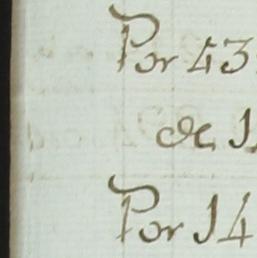 Por 43
de 1
Por 14